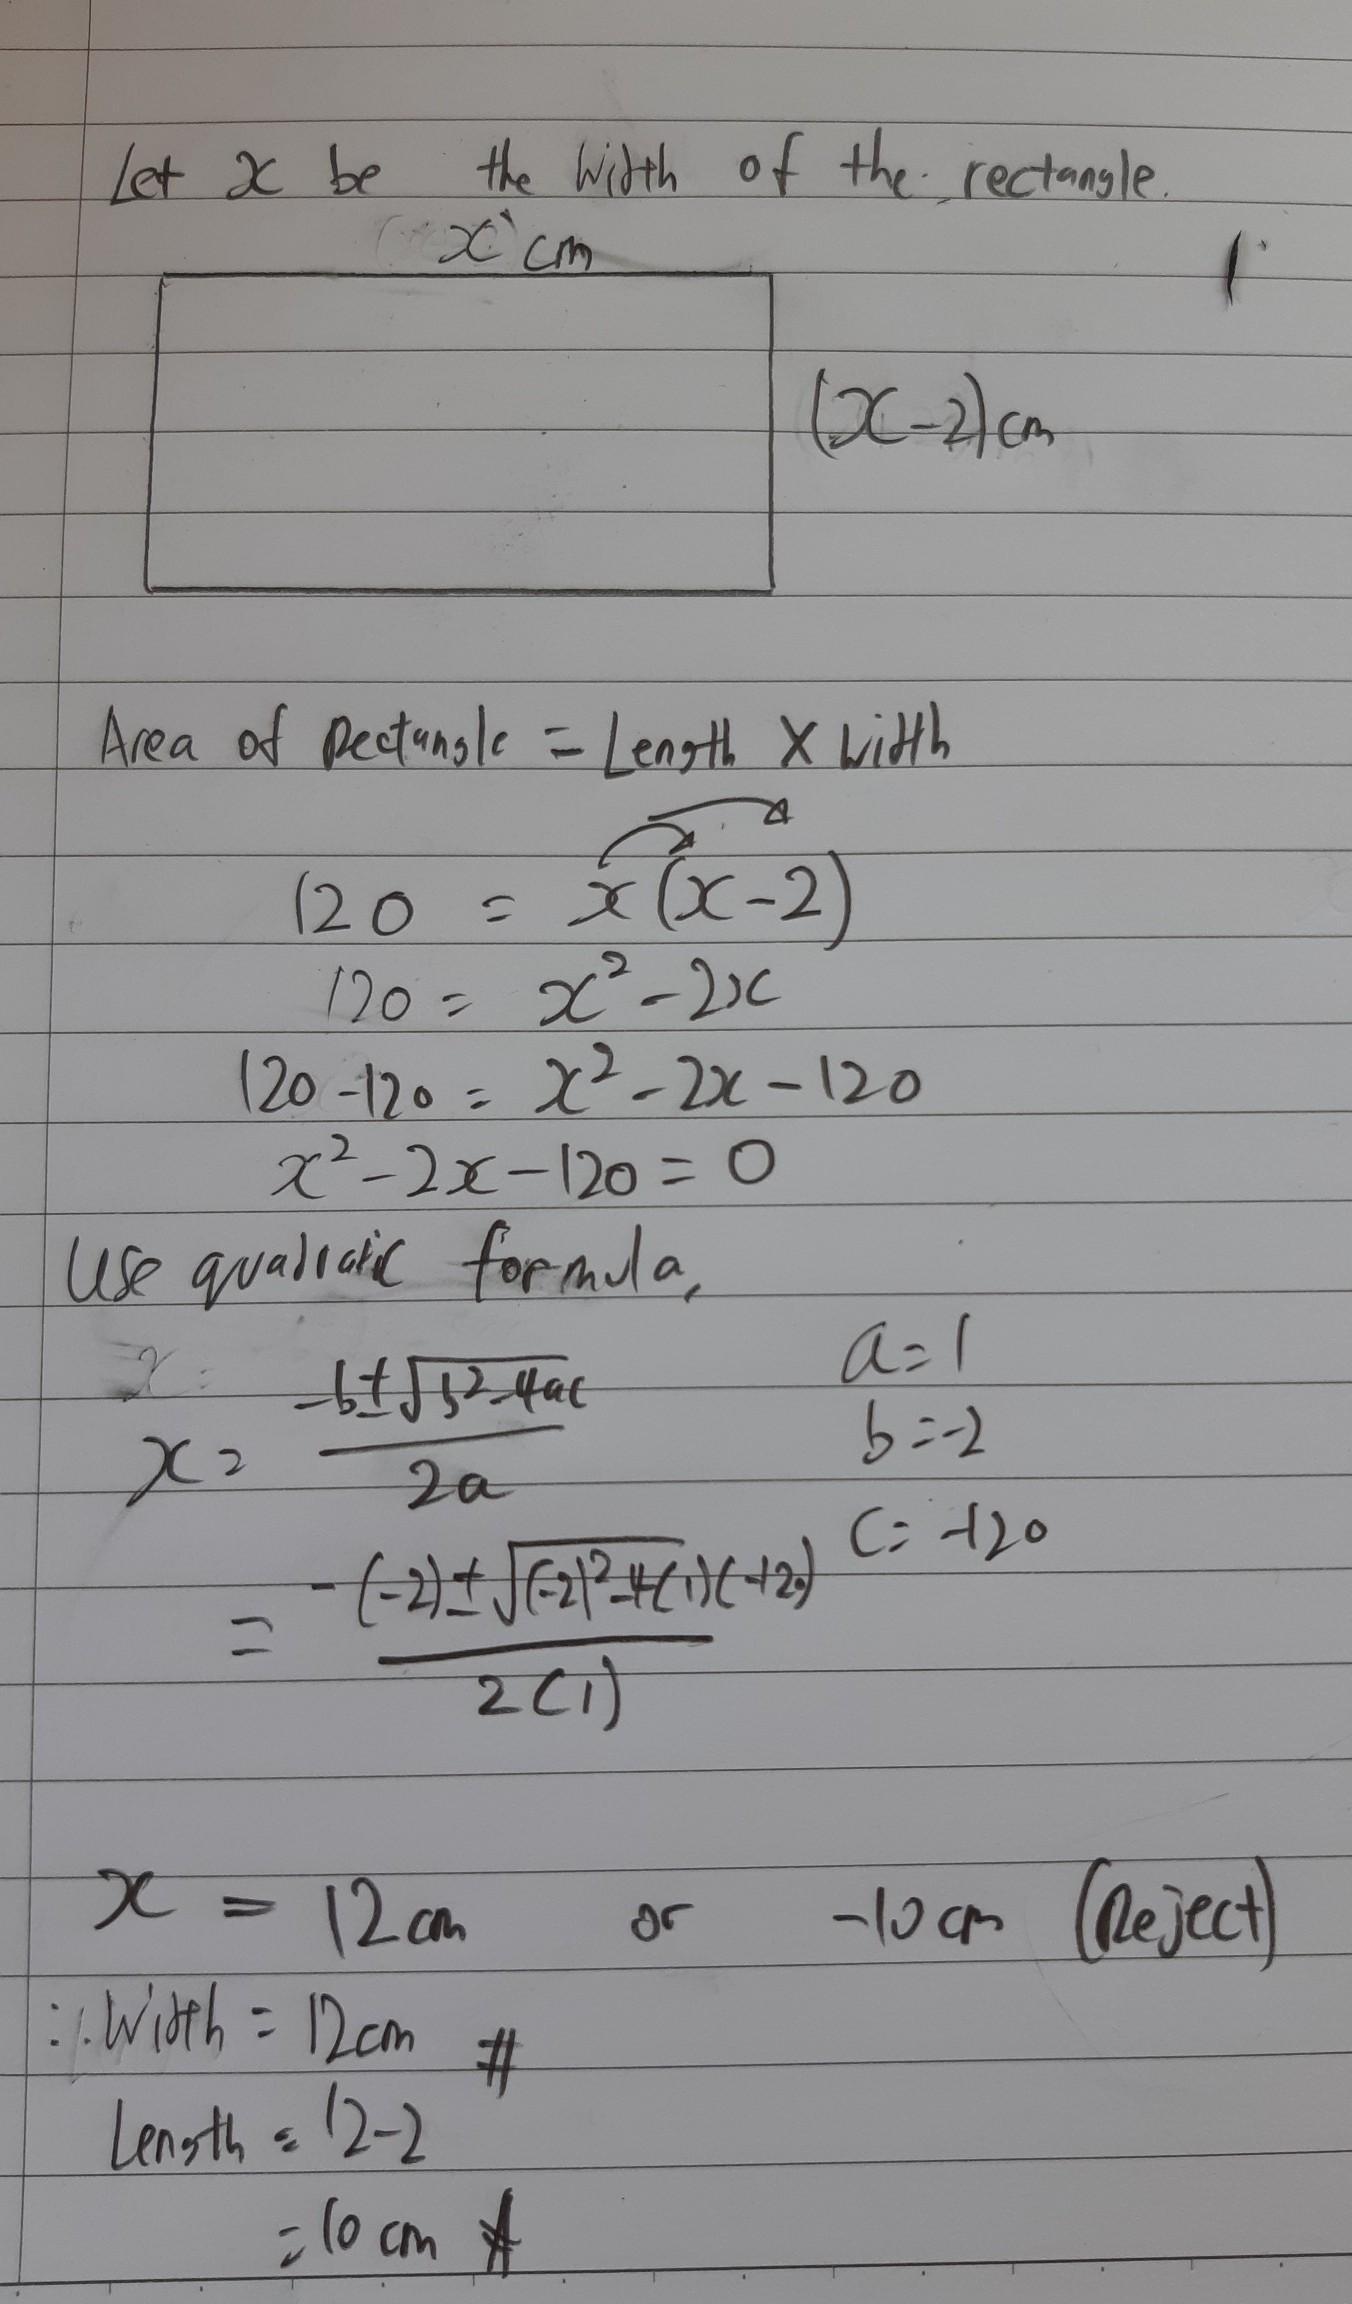 Let x be the width of the rectangle.
x cm
(x-2) cm
Area of Rectangle = Length × Width
120 = x(x-2)
120 = x² - 2x
120-120 = x² - 2x - 120
x² - 2x - 120 = 0
Use quadratic formula,
x = (-b±√(b²-4ac))/2a
a=1
b=-2
c=-120
= (-(-2)±√((-2)²-4(1)(-120)))/2(1)
x = 12cm or -10cm (Reject)
∴ Width = 12cm #
Length = 12-2
= 10 cm #